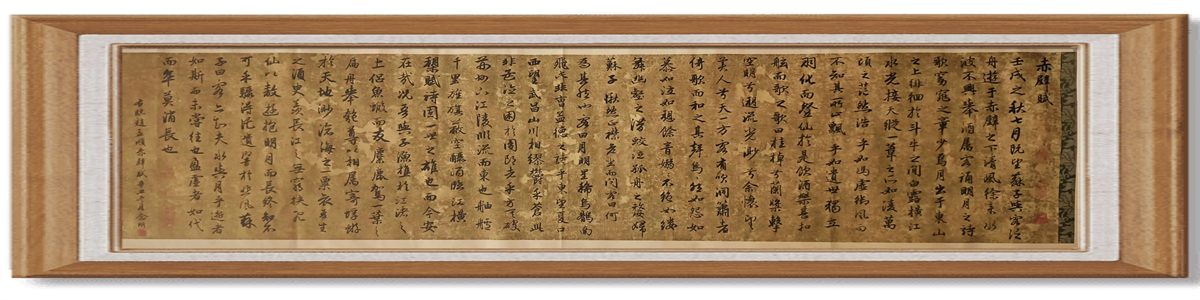 赤壁賦
壬戌之秋七月既望蘇子與客泛
舟遊于赤壁之下清風徐來水
波不興舉酒屬客誦明月之詩
歌窈窕之章少焉月出于東山
之上徘徊於斗牛之間白露橫江
水光接天縱一葦之所如凌萬
頃之茫然浩乎如馮虛御風而
不知其所止飄乎如遺世獨立
羽化而登仙於是飲酒樂甚扣
舷而歌之歌曰桂棹兮蘭槳擊
空明兮遡流光渺兮余懷望
美人兮天一方客有吹洞簫者
倚歌而和之其聲嗚嗚然如怨如
慕如泣如訴餘音嫋嫋不絕如縷
舞幽壑之潛蛟泣孤舟之嫠婦
蘇子愀然正襟危坐而問客曰何
為其然也客曰月明星稀烏鵲南
飛此非曹孟德之詩乎東望夏口
西望武昌山川相繆鬱乎蒼蒼此
非孟德之困於周郎者乎方其破
荊州下江陵順流而東也舳艫
千里旌旗蔽空釃酒臨江橫
槊賦詩固一世之雄也而今安
在哉況吾與子漁樵於江渚之
上侶魚蝦而友麋鹿駕一葉之
扁舟舉匏尊以相屬寄蜉蝣
於天地渺滄海之一粟哀吾生
之須臾羨長江之無窮挾飛
仙以遨遊抱明月而長終知不
可乎驟得託遺響於悲風蘇
子曰客亦知夫水與月乎逝者
如斯而未嘗往也盈虛者如代
而卒莫消長也